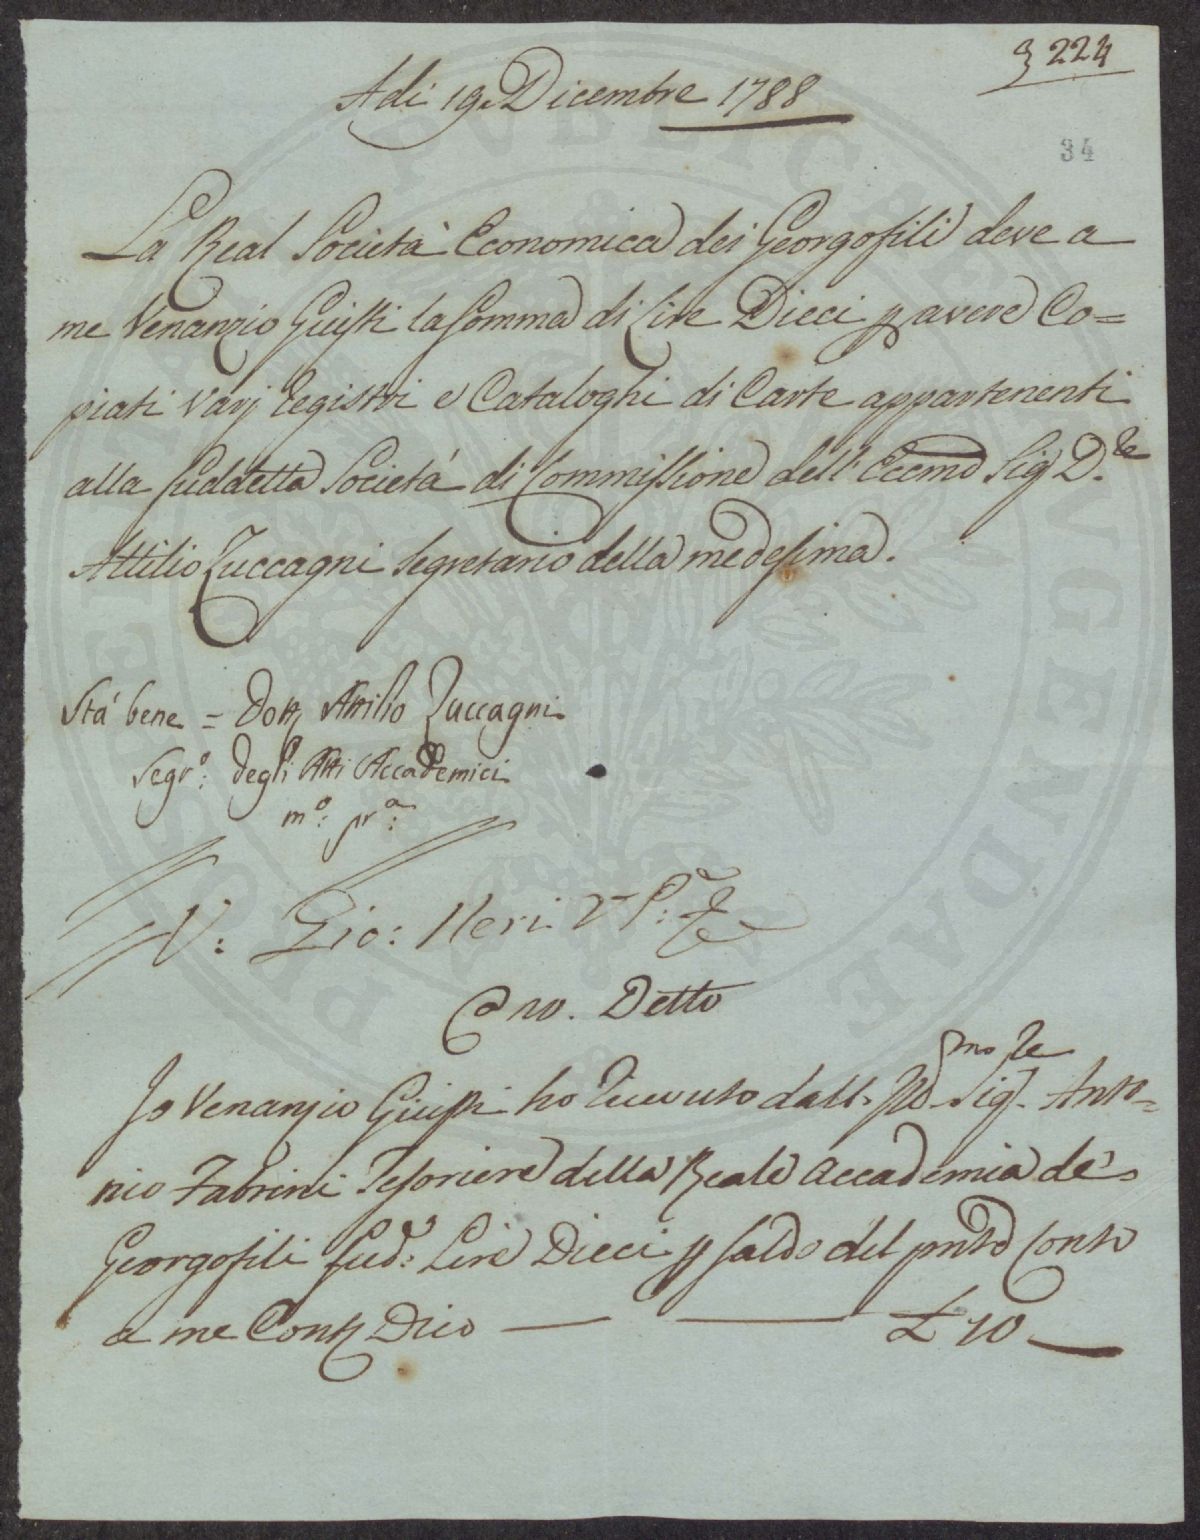 224
Adi 19. Dicembre 1788
34
La Real Società Economica dei Georgofili deve a
me Venanzio Giusti la somma di Lire Dieci p avere Co=
piati varj Registri e Cataloghi di Carte appartenenti
alla suddetta Società di Commissione dell' Eccmo Sig D.re
Attilio Zuccagni Segretario della medesima.
Stà bene = Dott Attilio Zuccagni
Segr.o: degli Atti Accademici
m.o: pr.a:
V: Gio: Neri
Detto
Io Venanzio Giusti ho Ricevuto dall. Sig.re Anto=
nio Fabrini Tesoriere della Reale Accademia de'
Georgofili sud.i Lire Dieci p saldo del pnte Conto
a me Cont Dico — — £ 10 —
PROSPERITATI PUBLICAE AUGENDAE